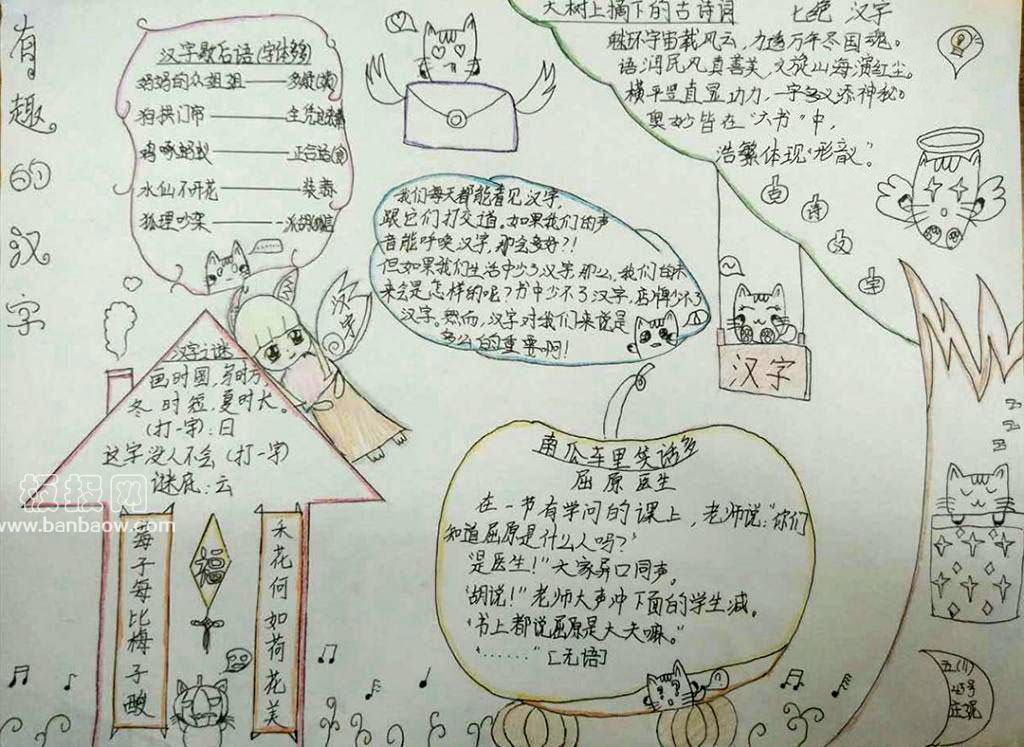 有趣的汉字
汉字歇后语(字体多多)
妈妈的众姐姐——多姨(疑)
狗拱门帘——主
鸡啄蚂蚁——正合适(食)
水仙不开花——装蒜
狐理吵架——一派胡(狐)言
大树上摘下的古诗词
七绝 汉字
环宇宙载风云，力透万年冬国魂。
语润民风真善美，文旋山海演红尘。
横平竖直显功力，一字多义添神秘。
奥妙皆在“六书”中，
浩繁体现“形音义”。
古
诗
白
文
字
我们每天都能看见汉字，
跟它们打交道。如果我们的声
音能呼唤汉字，那么多好?!
但如果我们生活中少了汉字，那么，我们的未
来会是怎样的呢?书中少不了汉字，店牌少不了
汉字。然而，汉字对我们来说是
多么的重要啊!
汉字
汉字
汉字之谜
画时圆，写时方，
冬时短，夏时长。
(打一字):日
这字没人不会(打一字)
谜底:云
板报网
www.banbaow.com
每子每比梅子酸
福
禾花何如荷花美
南瓜车里笑话多
屈原医生
在一节有学问的课上，老师说:“你们
知道屈原是什么人吗?”
“是医生!”大家异口同声。
“胡说!”老师大声冲下面的学生减。
“书上都说屈原是大夫嘛。”
“……”[无语]
五(11)
45号